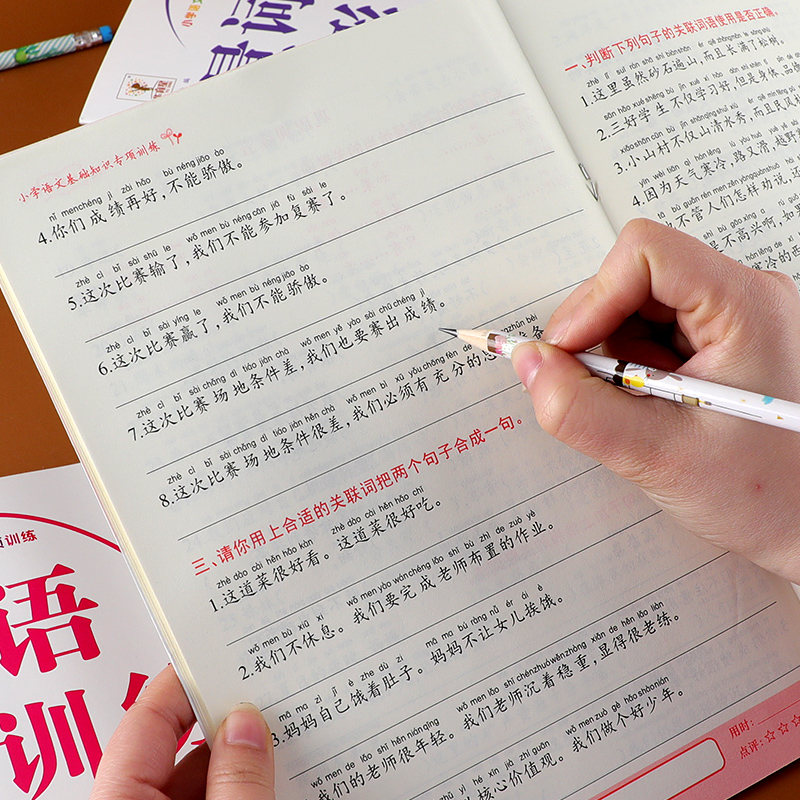 小学语文基础知识专项训练
nǐ men chéng jì zài hǎo bù néng jiāo ào
4.你们成绩再好，不能骄傲。
zhè cì bǐ sài shū le wǒ men bù néng cān jiā fù sài le
5.这次比赛输了，我们不能参加复赛了。
zhè cì bǐ sài yíng le wǒ men bù néng jiāo ào
6.这次比赛赢了，我们不能骄傲。
zhè cì bǐ sài chǎng dì tiáo jiàn chà wǒ men yě yào sài chū chéng jì
7.这次比赛场地条件差，我们也要赛出成绩。
zhè cì bǐ sài chǎng dì tiáo jiàn hěn chà wǒ men bì xū yǒu chōng fèn de zhǔn bèi
8.这次比赛场地条件很差，我们必须有充分的准备
三、请你用上合适的关联词把两个句子合成一句。
zhè dào cài hěn hǎo kàn zhè dào cài hěn hǎo chī
1.这道菜很好看。这道菜很好吃。
wǒ men bù xiū xi wǒ men yào wán chéng lǎo shī bù zhì de zuò yè
2.我们不休息。我们要完成老师布置的作业。
mā ma zì jǐ è zhe dù zi mā ma bù ràng nǚ ér ái è
3.妈妈自己饿着肚子。妈妈不让女儿挨饿。
wǒ men de lǎo shī hěn nián qīng wǒ men lǎo shī chén zhuó wěn zhòng xiǎn de hěn lǎo liàn
我们的老师很年轻。我们老师沉着稳重，显得很老练。
yì hé xīn jià zhí guān wǒ men zuò gè hǎo shào nián
核心价值观。我们做个好少年。
用时：
点评：☆☆
一、判断下列句子的关联词语使用是否正确。
zhè lǐ suī rán shā shí biàn shān ér qiě zhǎng mǎn le sōng shù
1.这里虽然砂石遍山，而且长满了松树。
sān hǎo xué shēng bù jǐn xué xí hǎo dàn shì shēn tǐ
2.三好学生不仅学习好，但是身体、品
xiǎo shān cūn bù jǐn shān qīng shuǐ xiù ér qiě mín
3.小山村不仅山清水秀，而且民风
yīn wèi tiān qì hán lěng lù yòu huá
4.因为天气寒冷，路又滑，越野
不管人们怎样劝说，还
是不高兴啊，如果
寒冷的
小学语文
训练
语
训练